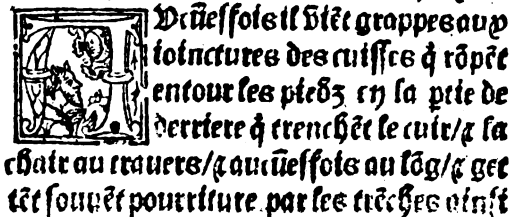 AUcũeffois il vĩẽt grappes aux
ioinctures des cuisses q̃ rõpẽt
entour les piedz en la ptie de
derriere q̃ trenchẽt le cuir/⁊ la
chair au trauers/⁊ aucũeffois au lõg/⁊ get
tẽt souuẽt pourriture par les trẽches ainsi